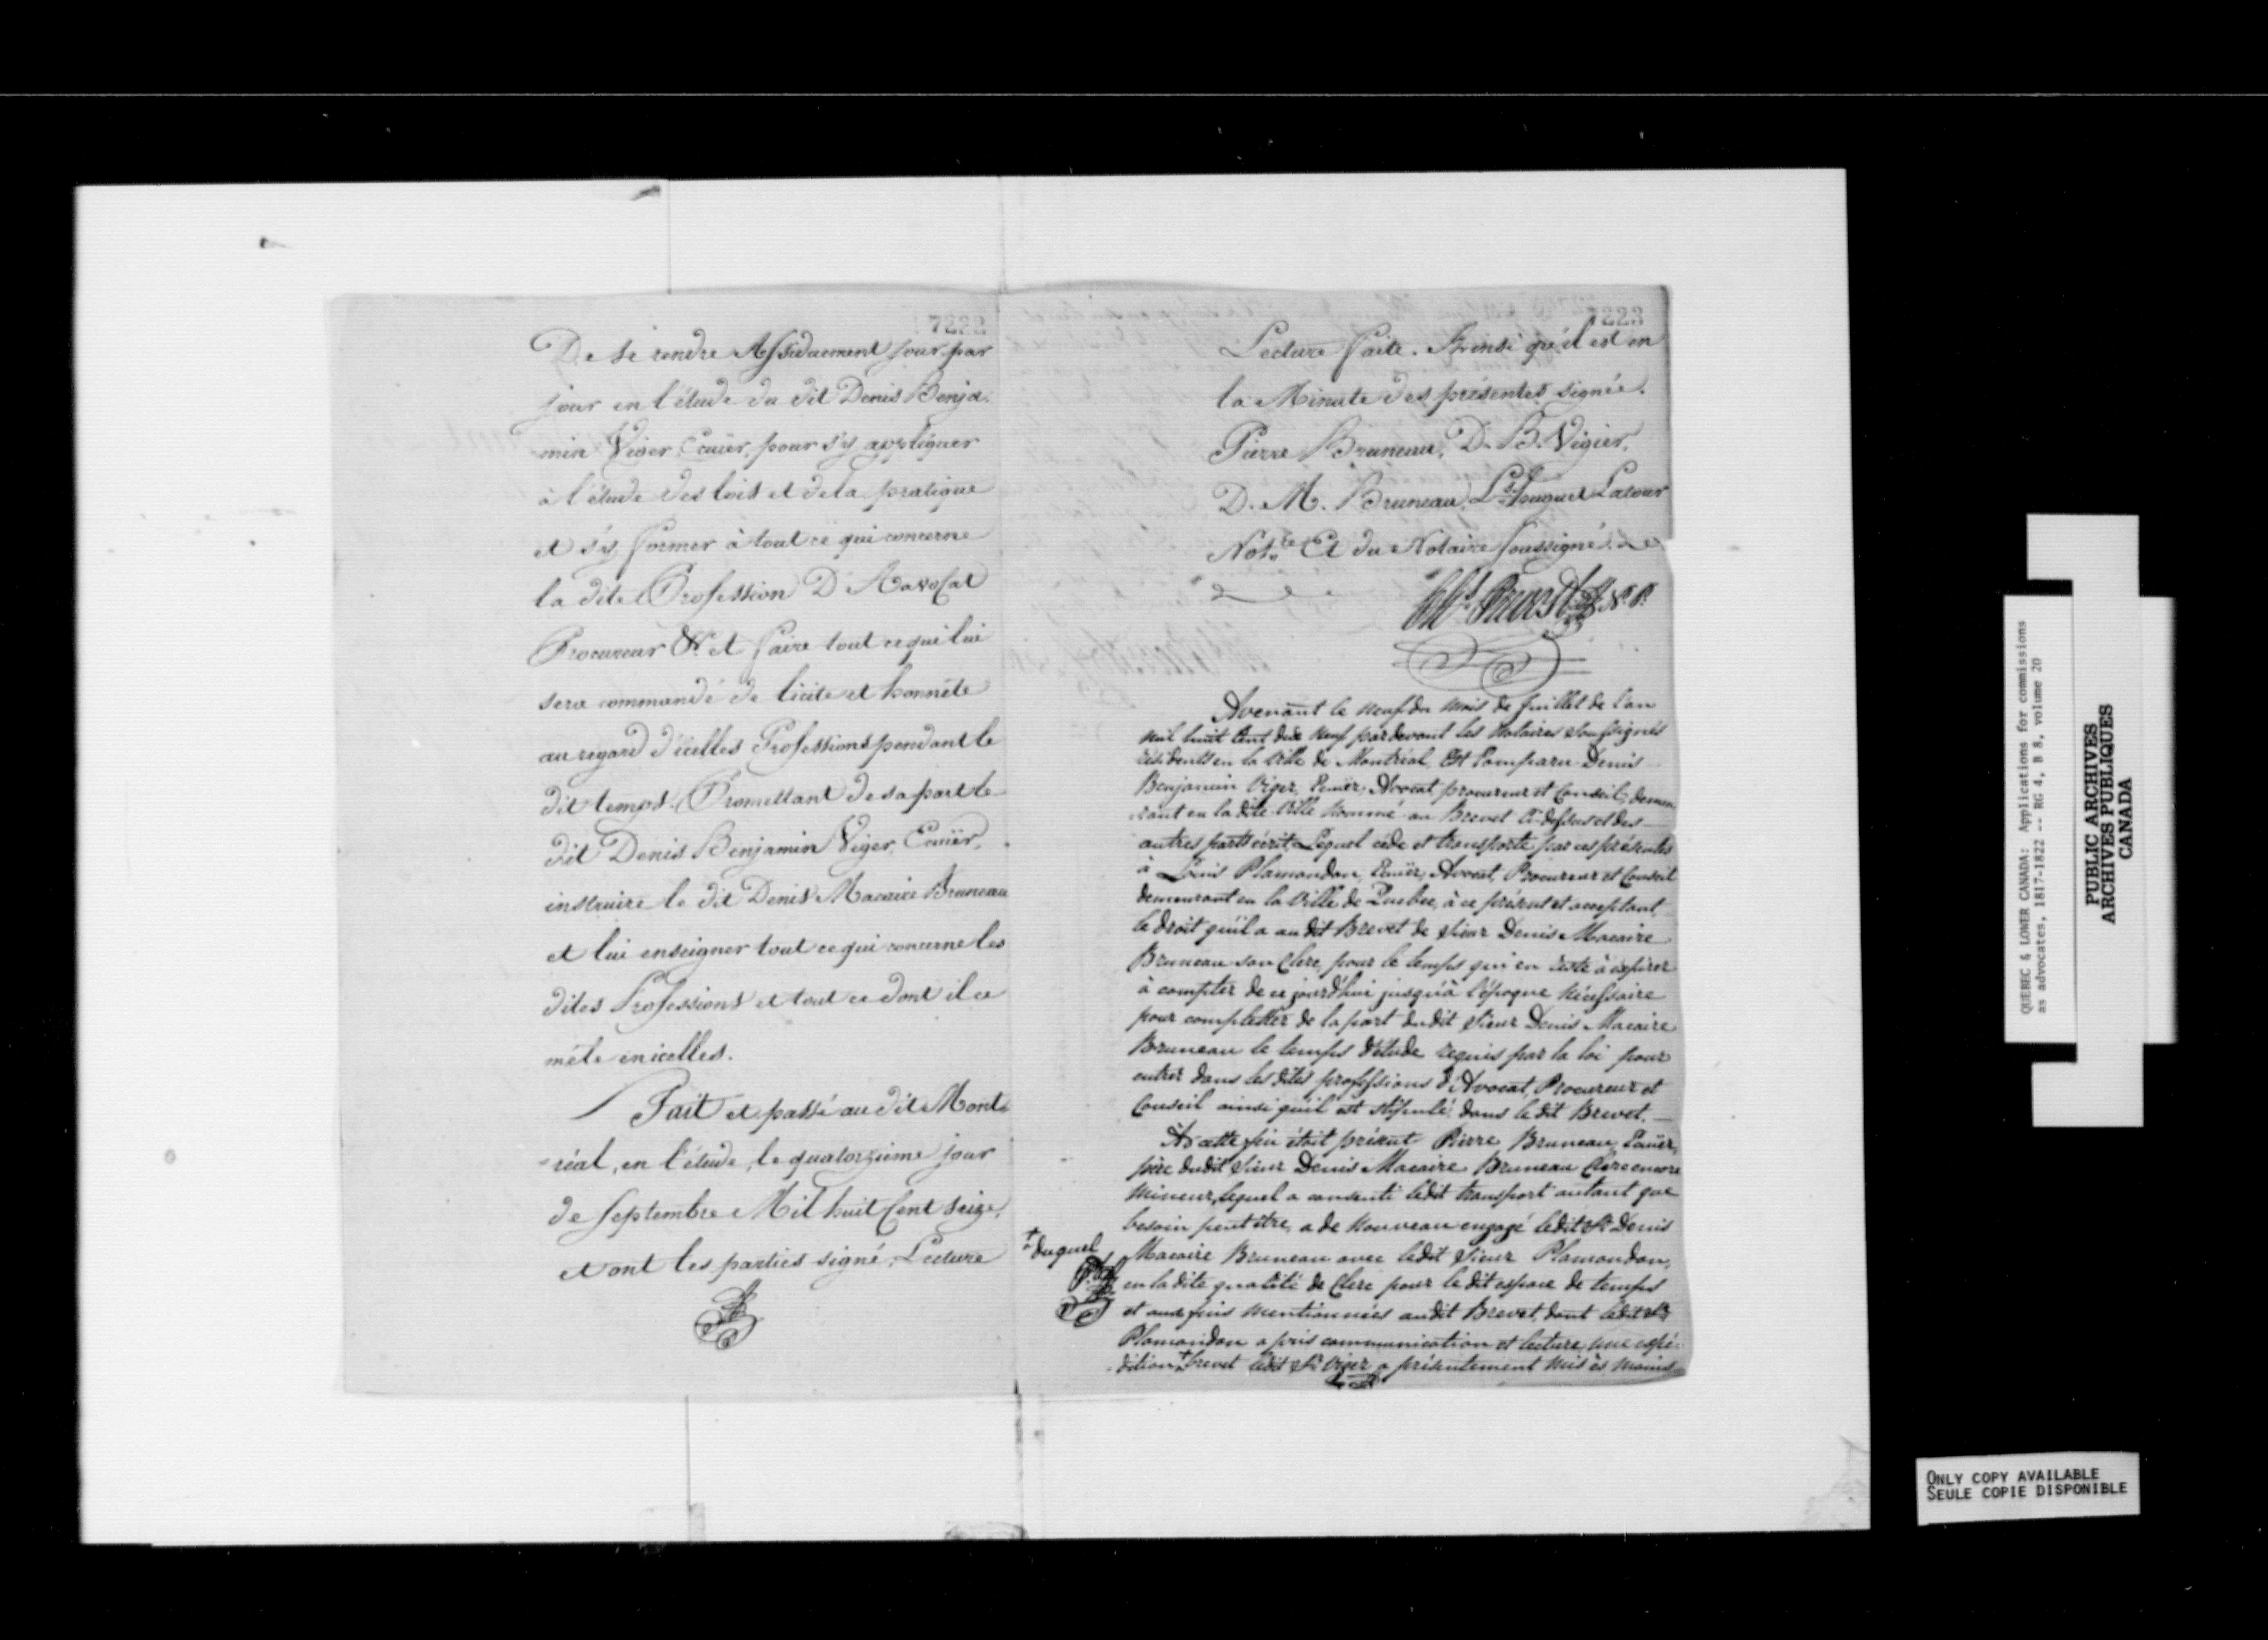 7222
De se rendre Assiduement jour par
jour en l'étude du dit Denis Benja-
min Viger Ecuïer, pour s'y appliquer
à l'étude des lois et de la pratique
et s'y former à tout ce qui concerne
la dite Profession D'Avocat
Procureur &c. et faire tout ce qui lui
sera commandé de licite et honnête
au regard d'icelles Professions pendant le
dit temps. Promettant de sa part le
dit Denis Benjamin Viger, Ecuïer,
instruire le dit Denis Macaire Bruneau
et lui enseigner tout ce qui concerne les
dites Professions et tout ce dont il se
mêle en icelles.
Fait et passé au dit Mont-
-réal, en l'étude, le quatorzieme jour
de Septembre Mil huit Cent Seize,
et ont les parties signé, Lecture
7223
Lecture faite. Ainsi qu'il est en
la Minute des présentes signée.
Pierre Bruneau, D. B. Vigier,
D. M. Bruneau, Ls. Huguet Latour
Notre. Et du Notaire soussigné.
N. P.
Avenant le neuf du mois de Juillet de l'an
mil huit Cent dix neuf pardevant les Notaires soussignés
résidents en la Ville de Montréal, Est Comparu Denis
Benjamin Viger, Ecuïer, Avocat, procureur et Conseil, demeu
rant en la dite Ville nommé au Brevet ci-dessus et des
autres parts écrit, Lequel cède et transporte par ces présentes
à Louis Plamondon, Ecuïer, Avocat, Procureur et Conseil
demeurant en la Ville de Quebec, à ce présent et acceptant,
le droit qu'il a au dit Brevet de Sieur Denis Macaire
Bruneau son Clerc, pour le temps qui en reste à expirer
à compter de ce jourd'hui jusqu'à l'époque nécessaire
pour completter de la part du dit Sieur Denis Macaire
Bruneau le temps d'étude requis par la loi pour
entrer dans les dites professions d'Avocat, Procureur et
Conseil ainsi qu'il est stipulé dans le dit Brevet.
A cette fin étoit présent Pierre Bruneau, Ecuïer,
père dudit Sieur Denis Macaire Bruneau Clerc encore
mineur, lequel a consenti ledit transport autant que
besoin peut être, a de nouveau engagé ledit Sr. Denis
Macaire Bruneau avec ledit Sieur Plamondon,
en la dite qualité de Clerc pour le dit espace de temps
et aux fins mentionnées audit Brevet, dont ledit Sr.
Plamondon a pris communication et lecture une expé-
dition + brevet ledit Sr. Viger a présentement mis ès mains
+ duquel
QUEBEC & LOWER CANADA: Applications for commissions
as advocates, 1817-1822 -- RG 4, B 8, volume 20
PUBLIC ARCHIVES
ARCHIVES PUBLIQUES
CANADA
ONLY COPY AVAILABLE
SEULE COPIE DISPONIBLE